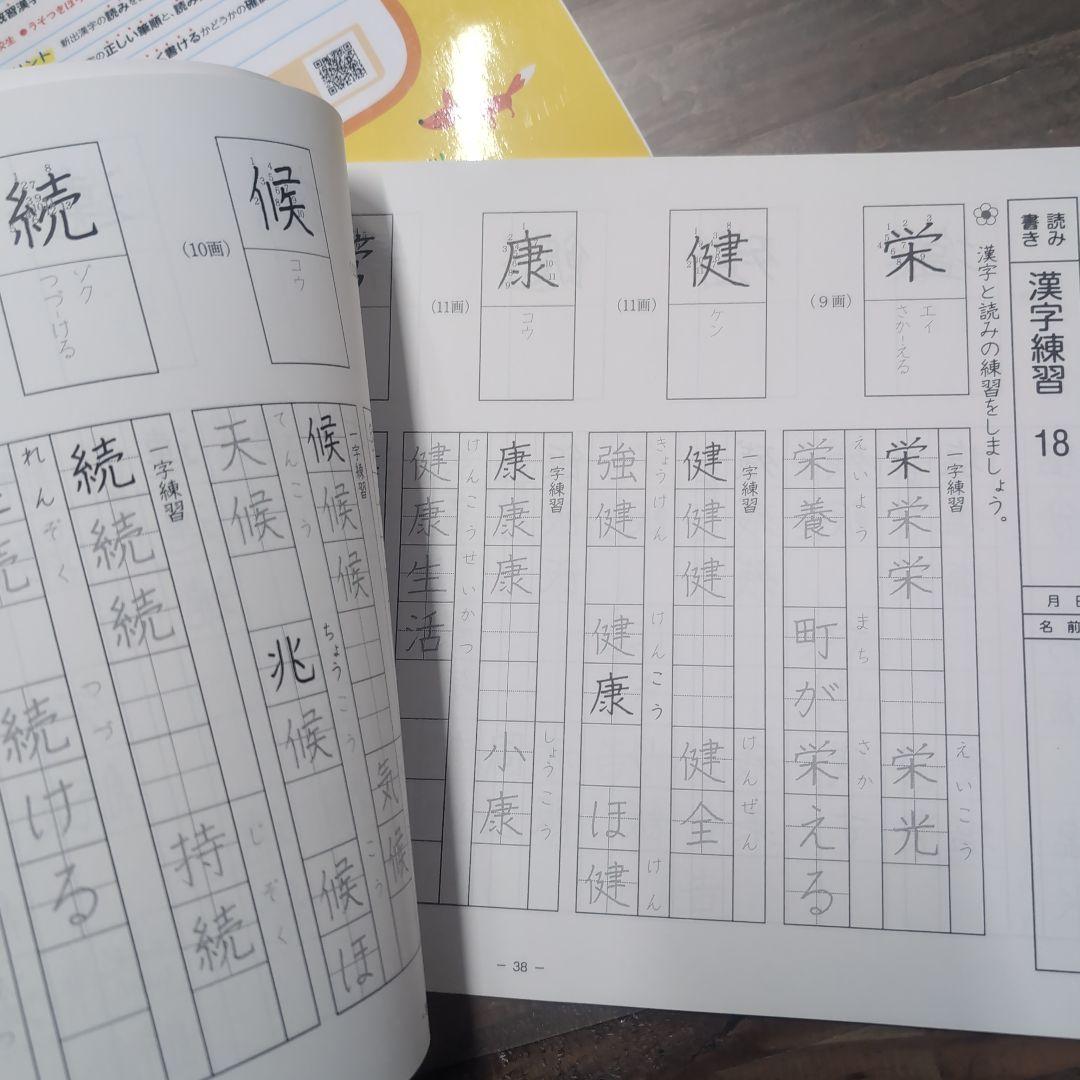 の読みを
正しい筆順と、読み
く書けるかどうかの確
新出漢字の
読み
書き
漢字練習
18
月
名前
漢字と読みの練習をしましょう。
栄
エイ
さか－える
（9画）
一字練習
栄栄栄
えいこう
栄光
えいよう
栄養
まち
さか
町が栄える
健
ケン
（11画）
一字練習
健健健
けんぜん
健全
きょうけん
強健
けんこう
健康
けん
ほ健
康
コウ
（11画）
一字練習
康康康
しょうこう
小康
けんこうせいかつ
健康生活
－ 38 －
候
コウ
（10画）
一字練習
候候候
こう
気候
てんこう
天候
ちょうこう
兆候
候ほ
続
ゾク
つづ－ける
一字練習
続続続
じぞく
持続
れんぞく
続
つづ
続ける